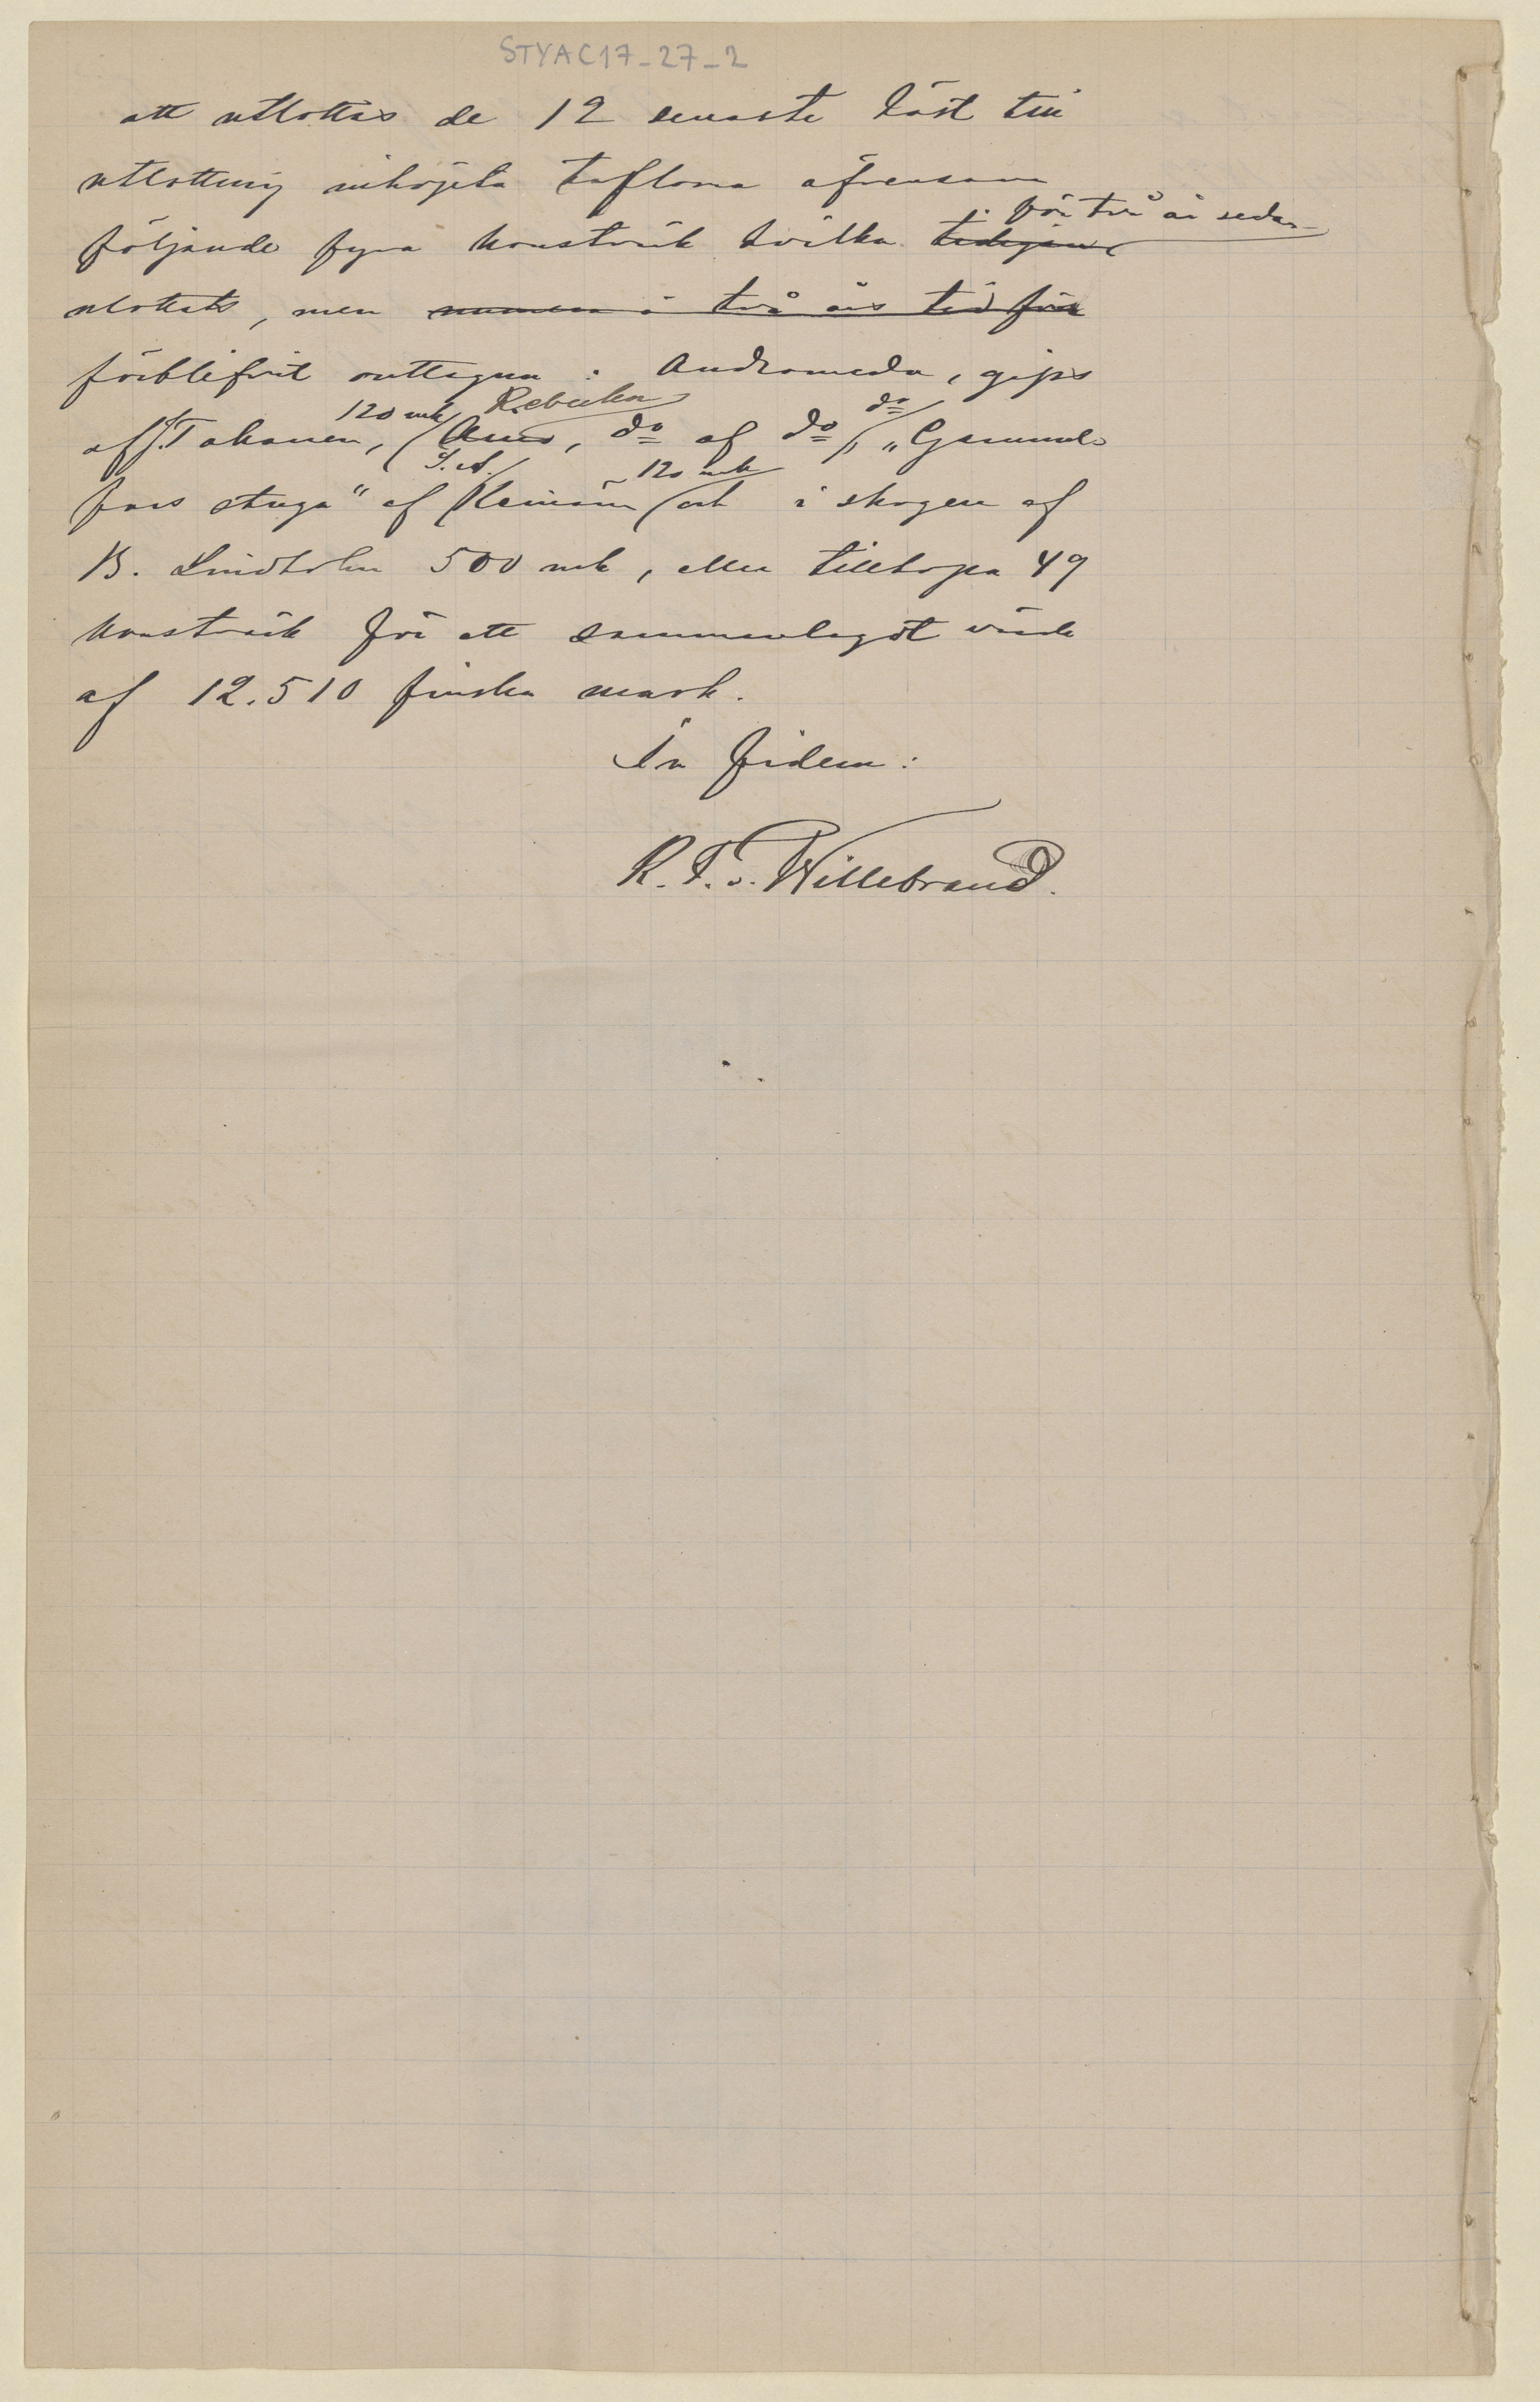 STYAC17-27-2
att utlottas de 12 senaste höst till
utlottning inköpta taflorna äfvensom
följande fyra konstvärk hvilka tidigare för två år sedan
utlottats, men i två års tid för
förblifvit outtagna: Andromeda, gips
af J. Takanen, 120 mk, Rebecka, do af do, do, „Gammel
fars stuga" af S. A. Keinänen 120 mk och i skogen af
B. Lindholm 500 mk, eller tillhopa 49
konstvärk för ett sammanlagdt värde
af 12.510 finska mark.
In fidem:
R. F. v. Willebrand.